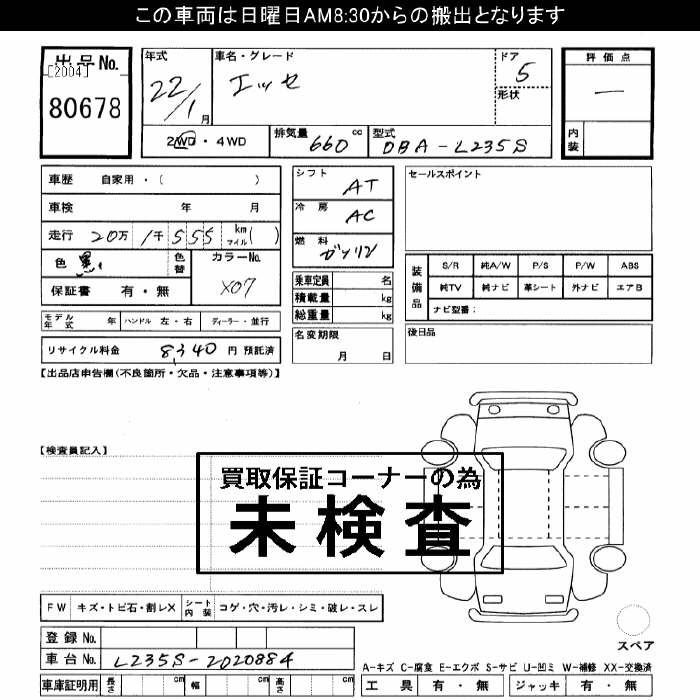 この車両は日曜日AM8:30からの搬出となります
出品No.
[2004]
80678
年式
22/1月
車名・グレード
エッセ
ドア
5
形状
評価点
—
内装
2WD・4WD
排気量 660 cc
型式 DBA-L235S
車歴 自家用・( )
車検 年 月
走行 20万 1千 555 km マイル( )
色 黒
色替
カラーNo.
X07
保証書 有・無
シフト AT
冷房 AC
燃料 ガソリン
乗車定員 名
積載量 kg
総重量 kg
セールスポイント
装備品
S/R 純A/W P/S P/W ABS
純TV 純ナビ 革シート 外ナビ エアB
ナビ型番:
モデル年式 年 ハンドル 左・右 ディーラー・並行
名変期限
月 日
後日品
リサイクル料金 8,340 円 預託済
【出品店申告欄(不良箇所・欠品・注意事項等)】
【検査員記入】
買取保証コーナーの為
未検査
FW キズ・トビ石・割レX シート内装 コゲ・穴・汚レ・シミ・破レ・スレ
スペア
登録No.
車台No. L235S-2020884
A-キズ C-腐食 E-エクボ S-サビ U-凹ミ W-補修 XX-交換済
車庫証明用 長さ cm 幅 cm 高さ cm
工具 有・無 ジャッキ 有・無